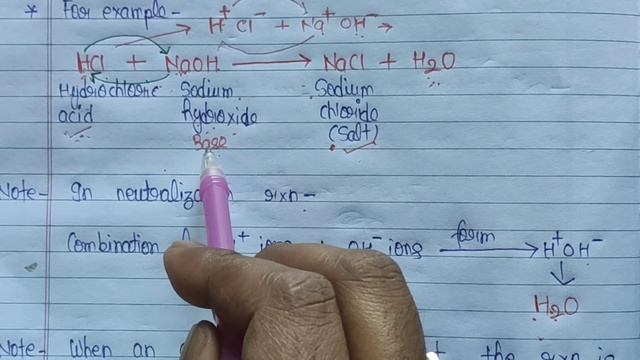 * For example -
H⁺ Cl⁻ + Na⁺ OH⁻ →
HCl + NaOH → NaCl + H₂O
Hydrochloric Sodium Sodium
acid hydroxide chloride
Base (Salt)
Note- In neutralization rxn -
Combination ions OH⁻ ions form → H⁺OH⁻
↓
H₂O
Note- When an the rxn is